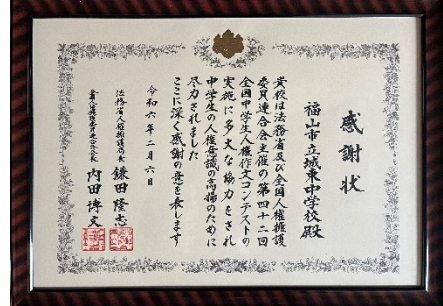 感謝状
福山市立城東中学校殿
貴校は法務省及び全国人権擁護
委員連合会主催の第四十二回
全国中学生人権作文コンテストの
実施に多大な協力をされ
中学生の人権意識の高揚のために
尽力されました
ここに深く感謝の意を表します
令和六年二月六日
法務省人権擁護局長 鎌田隆志
全国人権擁護委員連合会長 内田博文